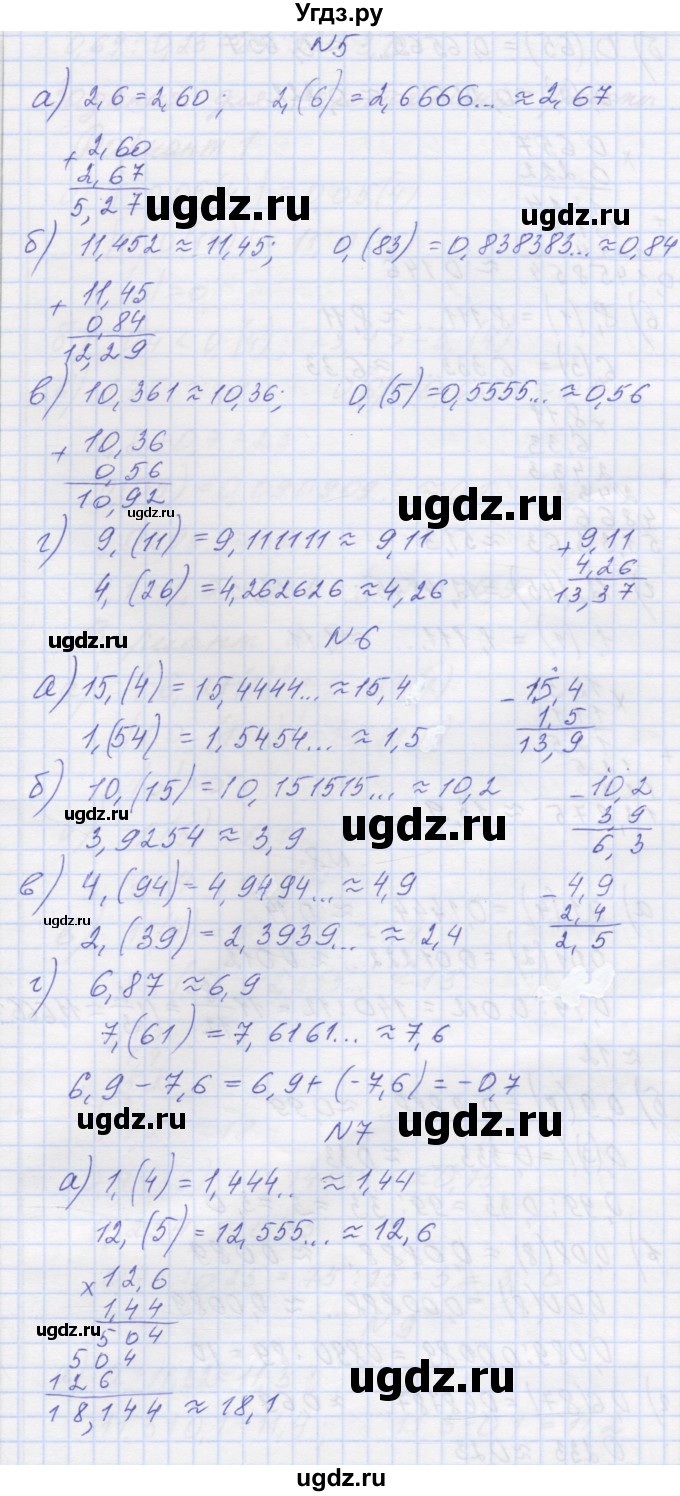 Угдз.ру
N5
а) 2,6 = 2,60; 2,(6) = 2,6666... ≈ 2,67
+ 2,60
2,67
5,27
ugdz.ru
ugdz.ru
б) 11,452 ≈ 11,45; 0,(83) = 0,838383... ≈ 0,84
+ 11,45
0,84
12,29
ugdz.ru
в) 10,361 ≈ 10,36; 0,(5) = 0,5555... ≈ 0,56
+ 10,36
0,56
10,92
ugdz.ru
ugdz.ru
г) 9,(11) = 9,111111 ≈ 9,11
4,(26) = 4,262626 ≈ 4,26
+ 9,11
4,26
13,37
ugdz.ru
N6
а) 15,(4) = 15,4444... ≈ 15,4
1,(54) = 1,5454... ≈ 1,5
- 15,4
1,5
13,9
б) 10,(15) = 10,151515... ≈ 10,2
3,9254 ≈ 3,9
- 10,2
3,9
6,3
ugdz.ru
ugdz.ru
в) 4,(94) = 4,9494... ≈ 4,9
2,(39) = 2,3939... ≈ 2,4
- 4,9
2,4
2,5
ugdz.ru
г) 6,87 ≈ 6,9
7,(61) = 7,6161... ≈ 7,6
6,9 - 7,6 = 6,9 + (-7,6) = -0,7
ugdz.ru
ugdz.ru
N7
а) 1,(4) = 1,444.. ≈ 1,44
12,(5) = 12,555... ≈ 12,6
× 12,6
1,44
504
504
126
18,144 ≈ 18,1
ugdz.ru
ugdz.ru
ugdz.ru